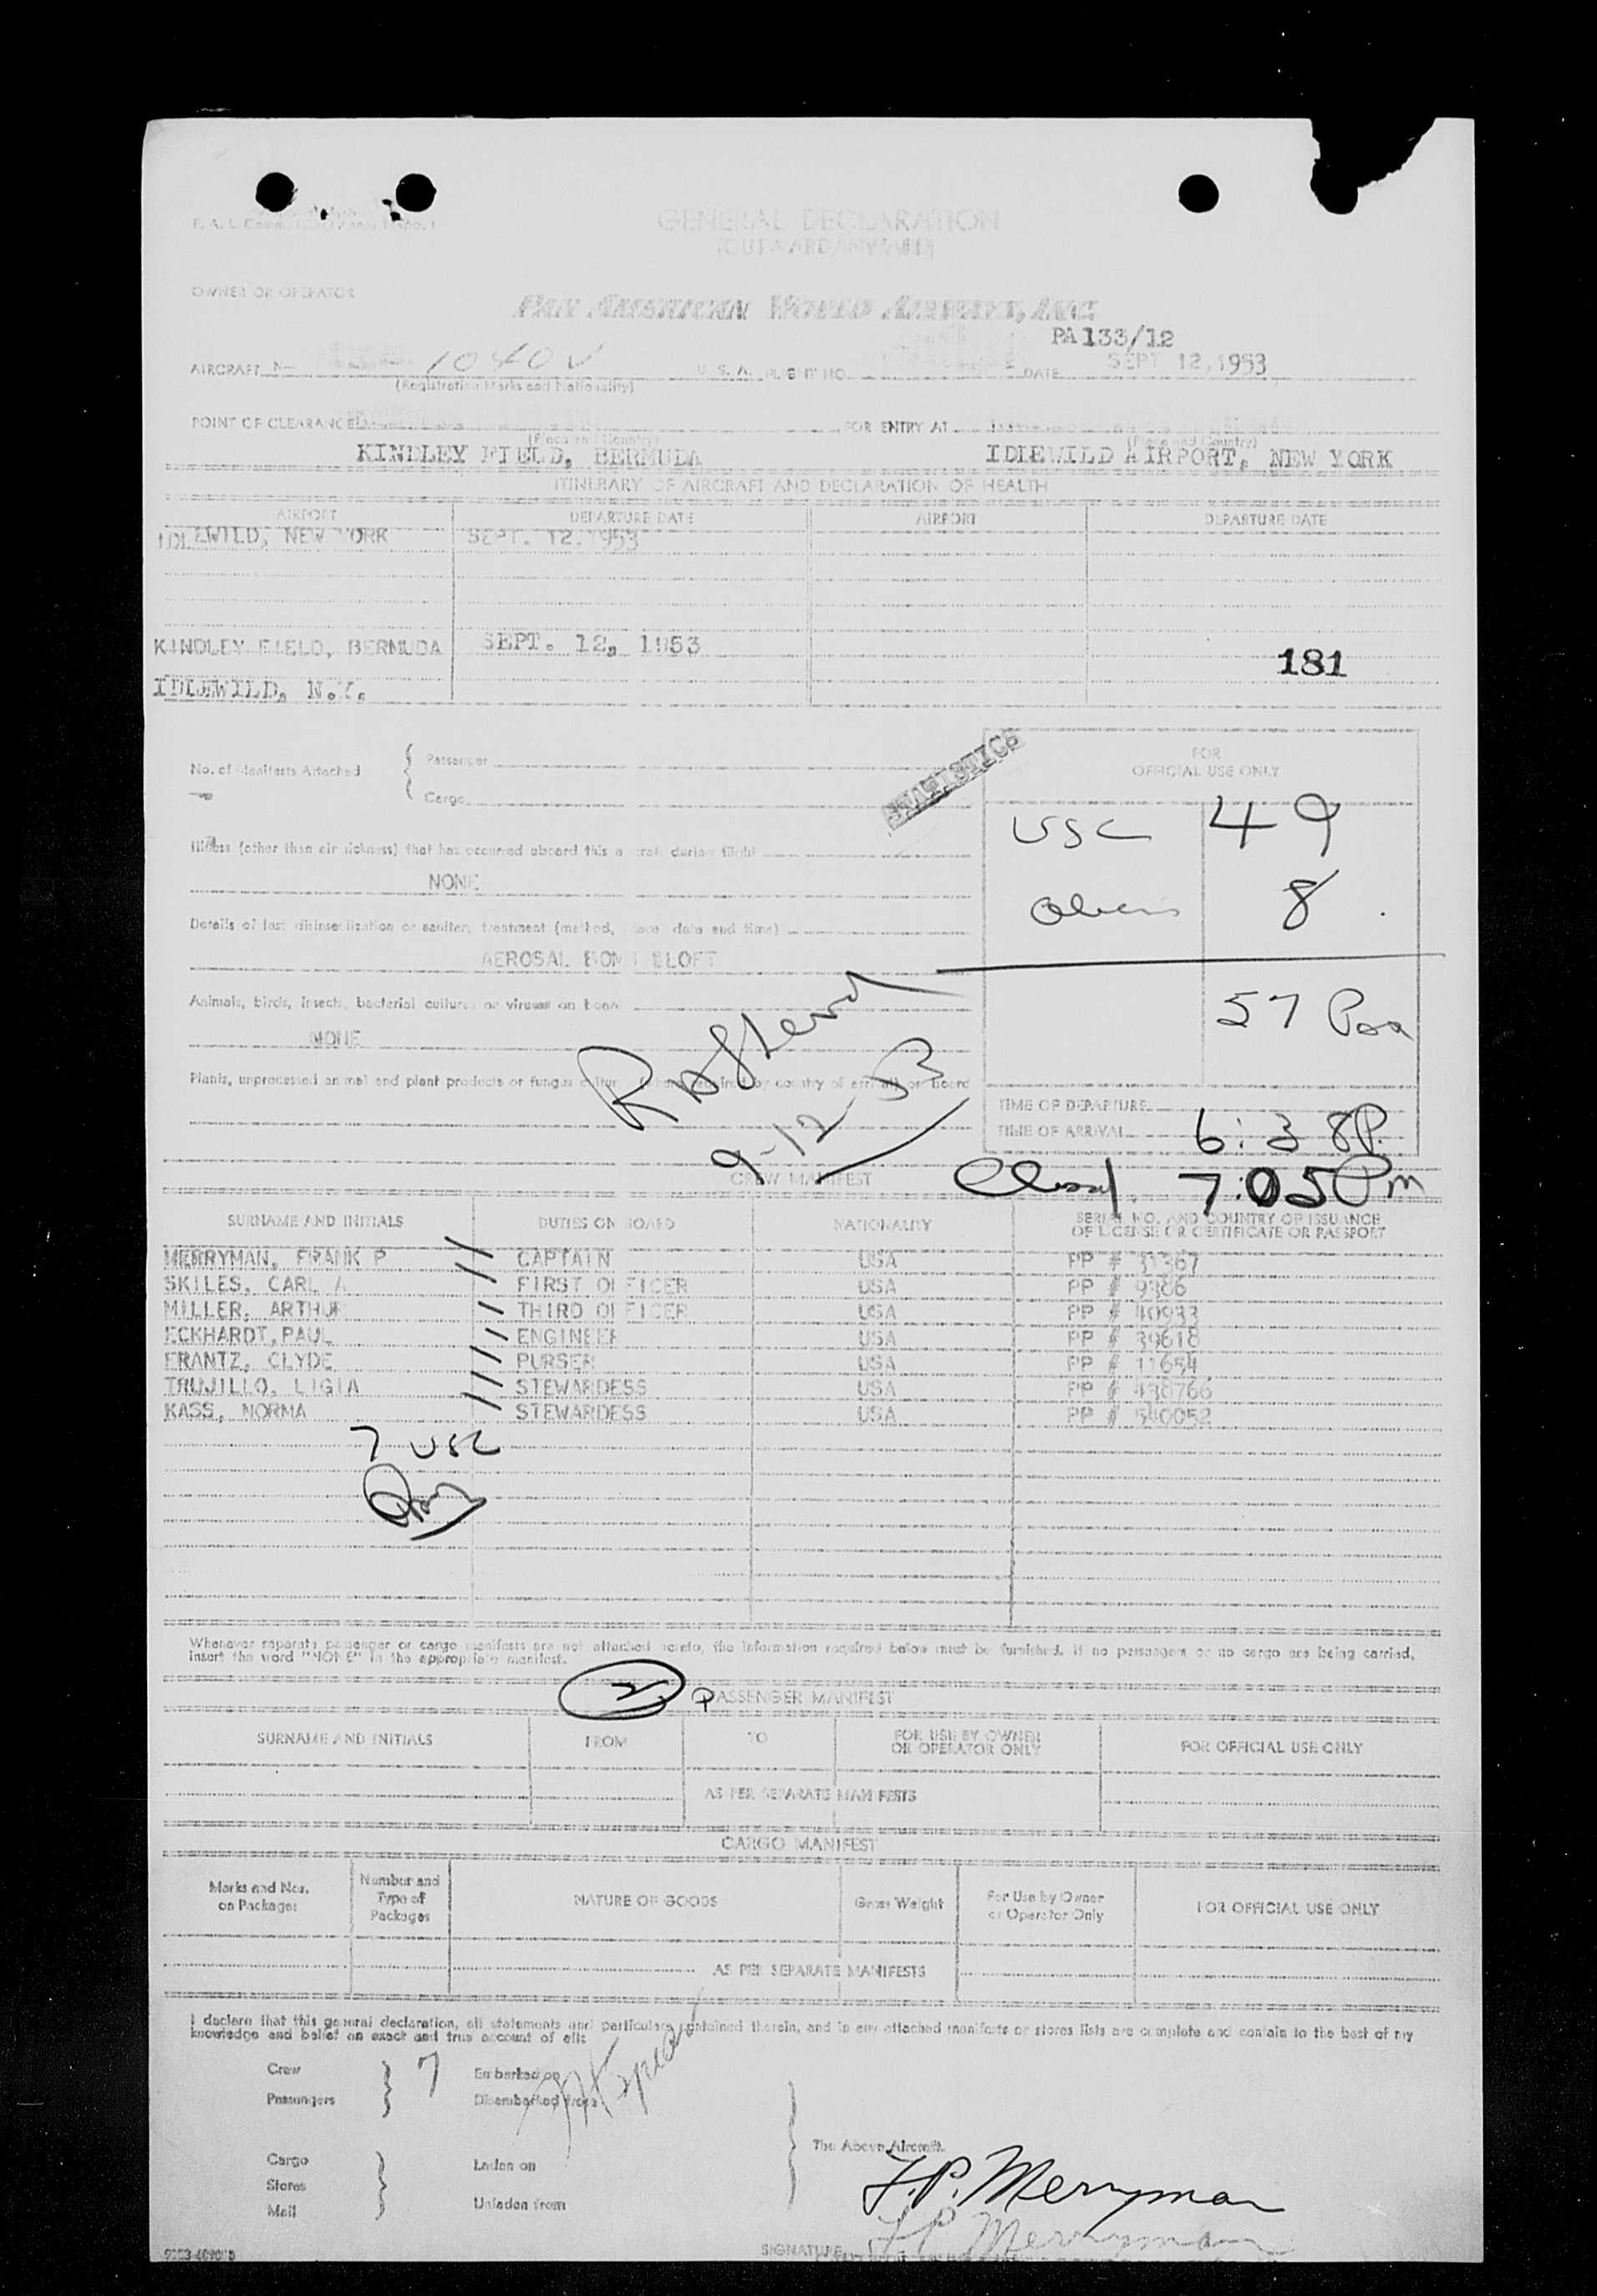 GENERAL DECLARATION
(OUTWARD/INWARD)
OWNER OR OPERATOR
PAN AMERICAN WORLD AIRWAYS, INC.
PA133/12
AIRCRAFT N- 1040V U. S. A. FLIGHT NO. DATE SEPT 12, 1953
(Registration Marks and Nationality)
POINT OF CLEARANCE FOR ENTRY AT
(Place and Country) (Place and Country)
KINDLEY FIELD, BERMUDA IDLEWILD AIRPORT, NEW YORK
ITINERARY OF AIRCRAFT AND DECLARATION OF HEALTH
AIRPORT DEPARTURE DATE AIRPORT DEPARTURE DATE
IDLEWILD, NEW YORK SEPT. 12, 1953
KINDLEY FIELD, BERMUDA SEPT. 12, 1953
181
IDLEWILD, N.Y.
STATISTICS
FOR
OFFICIAL USE ONLY
No. of Manifests Attached
Passenger
Cargo
USC 49
Illness (other than air sickness) that has occurred aboard this aircraft during flight
NONE
Aliens 8
Details of last disinsectization or sanitary treatment (method, place, date and time)
AEROSAL BOMB ALOFT
Animals, birds, insects, bacterial cultures or viruses on board
57 Pax
NONE
Plants, unprocessed animal and plant products or fungus cultures (where required by country of arrival) on board
9-12-53
TIME OF DEPARTURE
TIME OF ARRIVAL 6:38P.
Closed 7:05 Pm
CREW MANIFEST
SURNAME AND INITIALS DUTIES ON BOARD NATIONALITY SERIAL NO. AND COUNTRY OF ISSUANCE
OF LICENSE OR CERTIFICATE OR PASSPORT
MERRYMAN, FRANK P CAPTAIN USA PP # 31367
SKILES, CARL A FIRST OFFICER USA PP # 9386
MILLER, ARTHUR THIRD OFFICER USA PP # 40933
ECKHARDT, PAUL ENGINEER USA PP # 39618
FRANTZ, CLYDE PURSER USA PP # 11654
TRUJILLO, LIGIA STEWARDESS USA PP # 438766
KASS, NORMA STEWARDESS USA PP # 540052
7 USC
Whenever separate passenger or cargo manifests are not attached hereto, the information required below must be furnished. If no passengers or no cargo are being carried,
insert the word "NONE" in the appropriate manifest.
2 PASSENGER MANIFEST
SURNAME AND INITIALS FROM TO FOR USE BY OWNER
OR OPERATOR ONLY FOR OFFICIAL USE ONLY
AS PER SEPARATE MANIFESTS
CARGO MANIFEST
Marks and Nos.
on Packages
Number and
Type of
Packages
NATURE OF GOODS
Gross Weight
For Use by Owner
or Operator Only
FOR OFFICIAL USE ONLY
AS PER SEPARATE MANIFESTS
I declare that this general declaration, all statements and particulars contained therein, and in any attached manifests or stores lists are complete and contain to the best of my
knowledge and belief an exact and true account of all:
Crew 7 Embarked on
Passengers Disembarked from
The Above Aircraft.
Cargo Laden on
Stores
Mail Unladen from
F.P. Merryman
F.P. Merryman
SIGNATURE